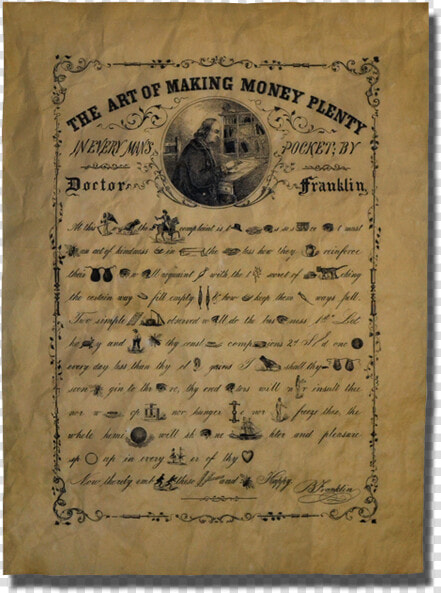 THE ART OF MAKING MONEY PLENTY
IN EVERY MAN'S POCKET; BY
Doctor Franklin
At this the complaint is t s in s ce t must
an act of kindness in the less how they reinforce
their w all aquaint with the t secret of ching
the certain way fill empty & how keep them ways full.
Two simple observed w ll do the bus ness. 1st Let
ho ty and thy const compan ions 2d S d one
every day less than thy cl gains T shall thy
soon gin to thr ve, thy cred tors will r insult thee
nor w op nor hunger e nor freeze thee, the
whole hemi will sh ne hter and pleasure
sp op in every er of thy
Now thereby emb these and Happy.
B Franklin